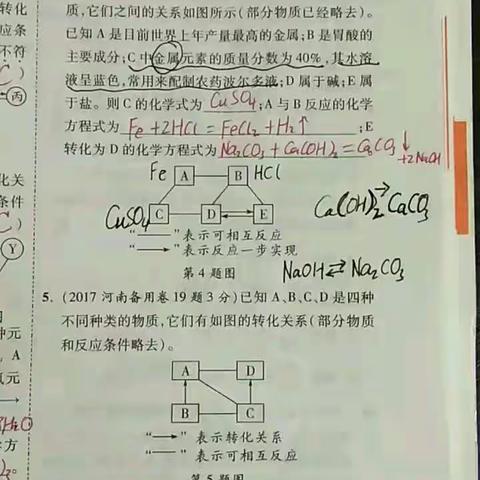 质,它们之间的关系如图所示(部分物质已经略去)。
已知 A 是目前世界上年产量最高的金属;B 是胃酸的
主要成分;C 中金属元素的质量分数为 40%,其水溶
液呈蓝色,常用来配制农药波尔多液;D 属于碱;E 属
于盐。则 C 的化学式为 CuSO₄ ;A 与 B 反应的化学
方程式为 Fe + 2HCl = FeCl₂ + H₂↑ ;E
转化为 D 的化学方程式为 Na₂CO₃ + Ca(OH)₂ = CaCO₃↓
+2NaOH
Fe A B HCl
CuSO₄ C D E
Ca(OH)₂ → CaCO₃
“——”表示可相互反应
“→”表示反应一步实现
第 4 题图
NaOH ⇄ Na₂CO₃
5. (2017 河南备用卷 19 题 3 分)已知 A、B、C、D 是四种
不同种类的物质,它们有如图的转化关系(部分物质
和反应条件略去)。
A D
B C
“→”表示转化关系
“——”表示可相互反应
第 5 题图
转化
应条
不符
丙
化关
条件
Y
种元
A
氧元
学方